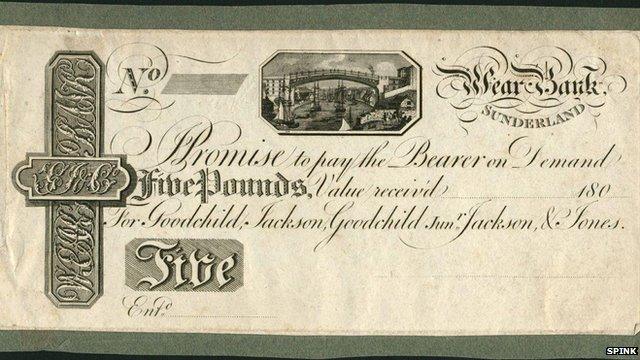 No.
Wear Bank.
SUNDERLAND
Promise to pay the Bearer on Demand
Five Pounds, Value receiv'd 180
For Goodchild, Jackson, Goodchild Junr. Jackson, & Jones.
Five
Entd.
SPINK